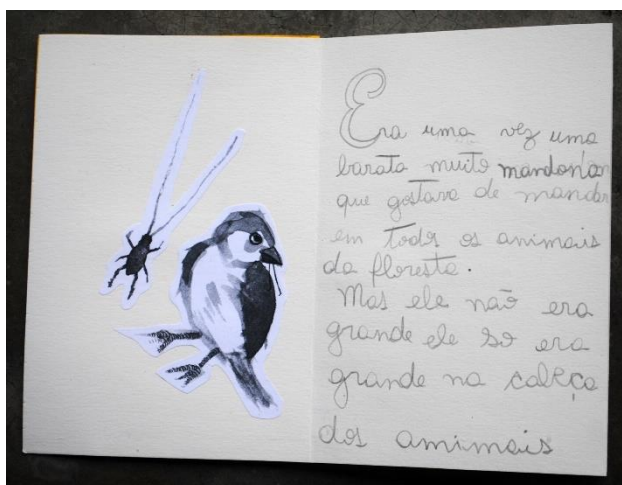 Era uma vez uma
barata muito mandona
que gostava de mandar
em todos os animais
da floresta.
Mas ele não era
grande ele so era
grande na cabeça
dos amimais